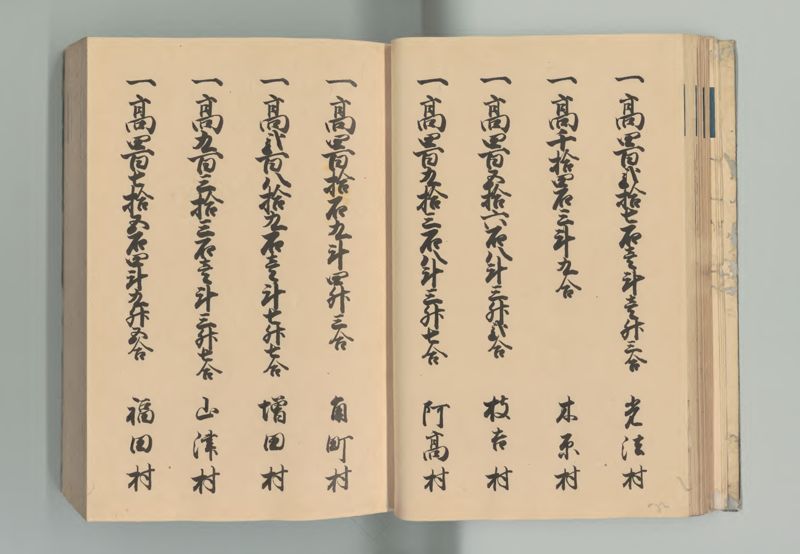 一高四百弐拾七石壱斗壱升三合 光法村
一高千拾四石三斗九合 木原村
一高四百五拾六石八斗三升弐合 枝吉村
一高四百九拾三石八斗三升七合 阿高村
一高四百拾石九斗四升三合 角町村
一高弐百八拾九石壱斗七升七合 増田村
一高九百三拾三石壱斗三升七合 山津村
一高四百七拾五石四斗九升五合 福田村